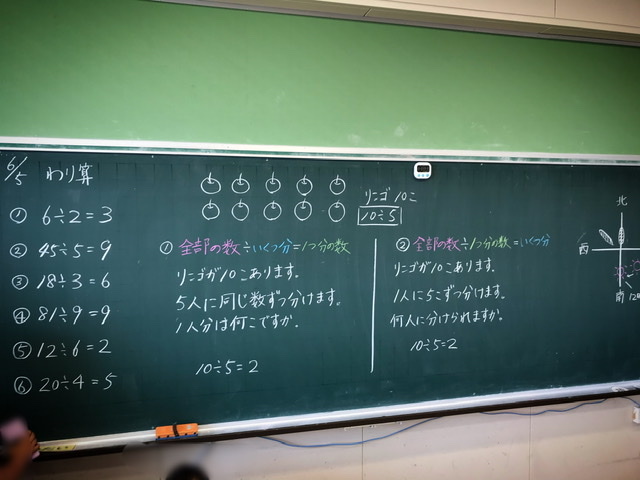 6/5 わり算
① 6÷2=3
② 45÷5=9
③ 18÷3=6
④ 81÷9=9
⑤ 12÷6=2
⑥ 20÷4=5
リンゴ 10こ
10÷5
① 全部の数÷いくつ分=1つ分の数
リンゴが10こあります。
5人に同じ数ずつ分けます。
1人分は何こですか。
10÷5=2
② 全部の数÷1つ分の数=いくつ分
リンゴが10こあります。
1人に5こずつ分けます。
何人に分けられますか。
10÷5=2
北
西
南